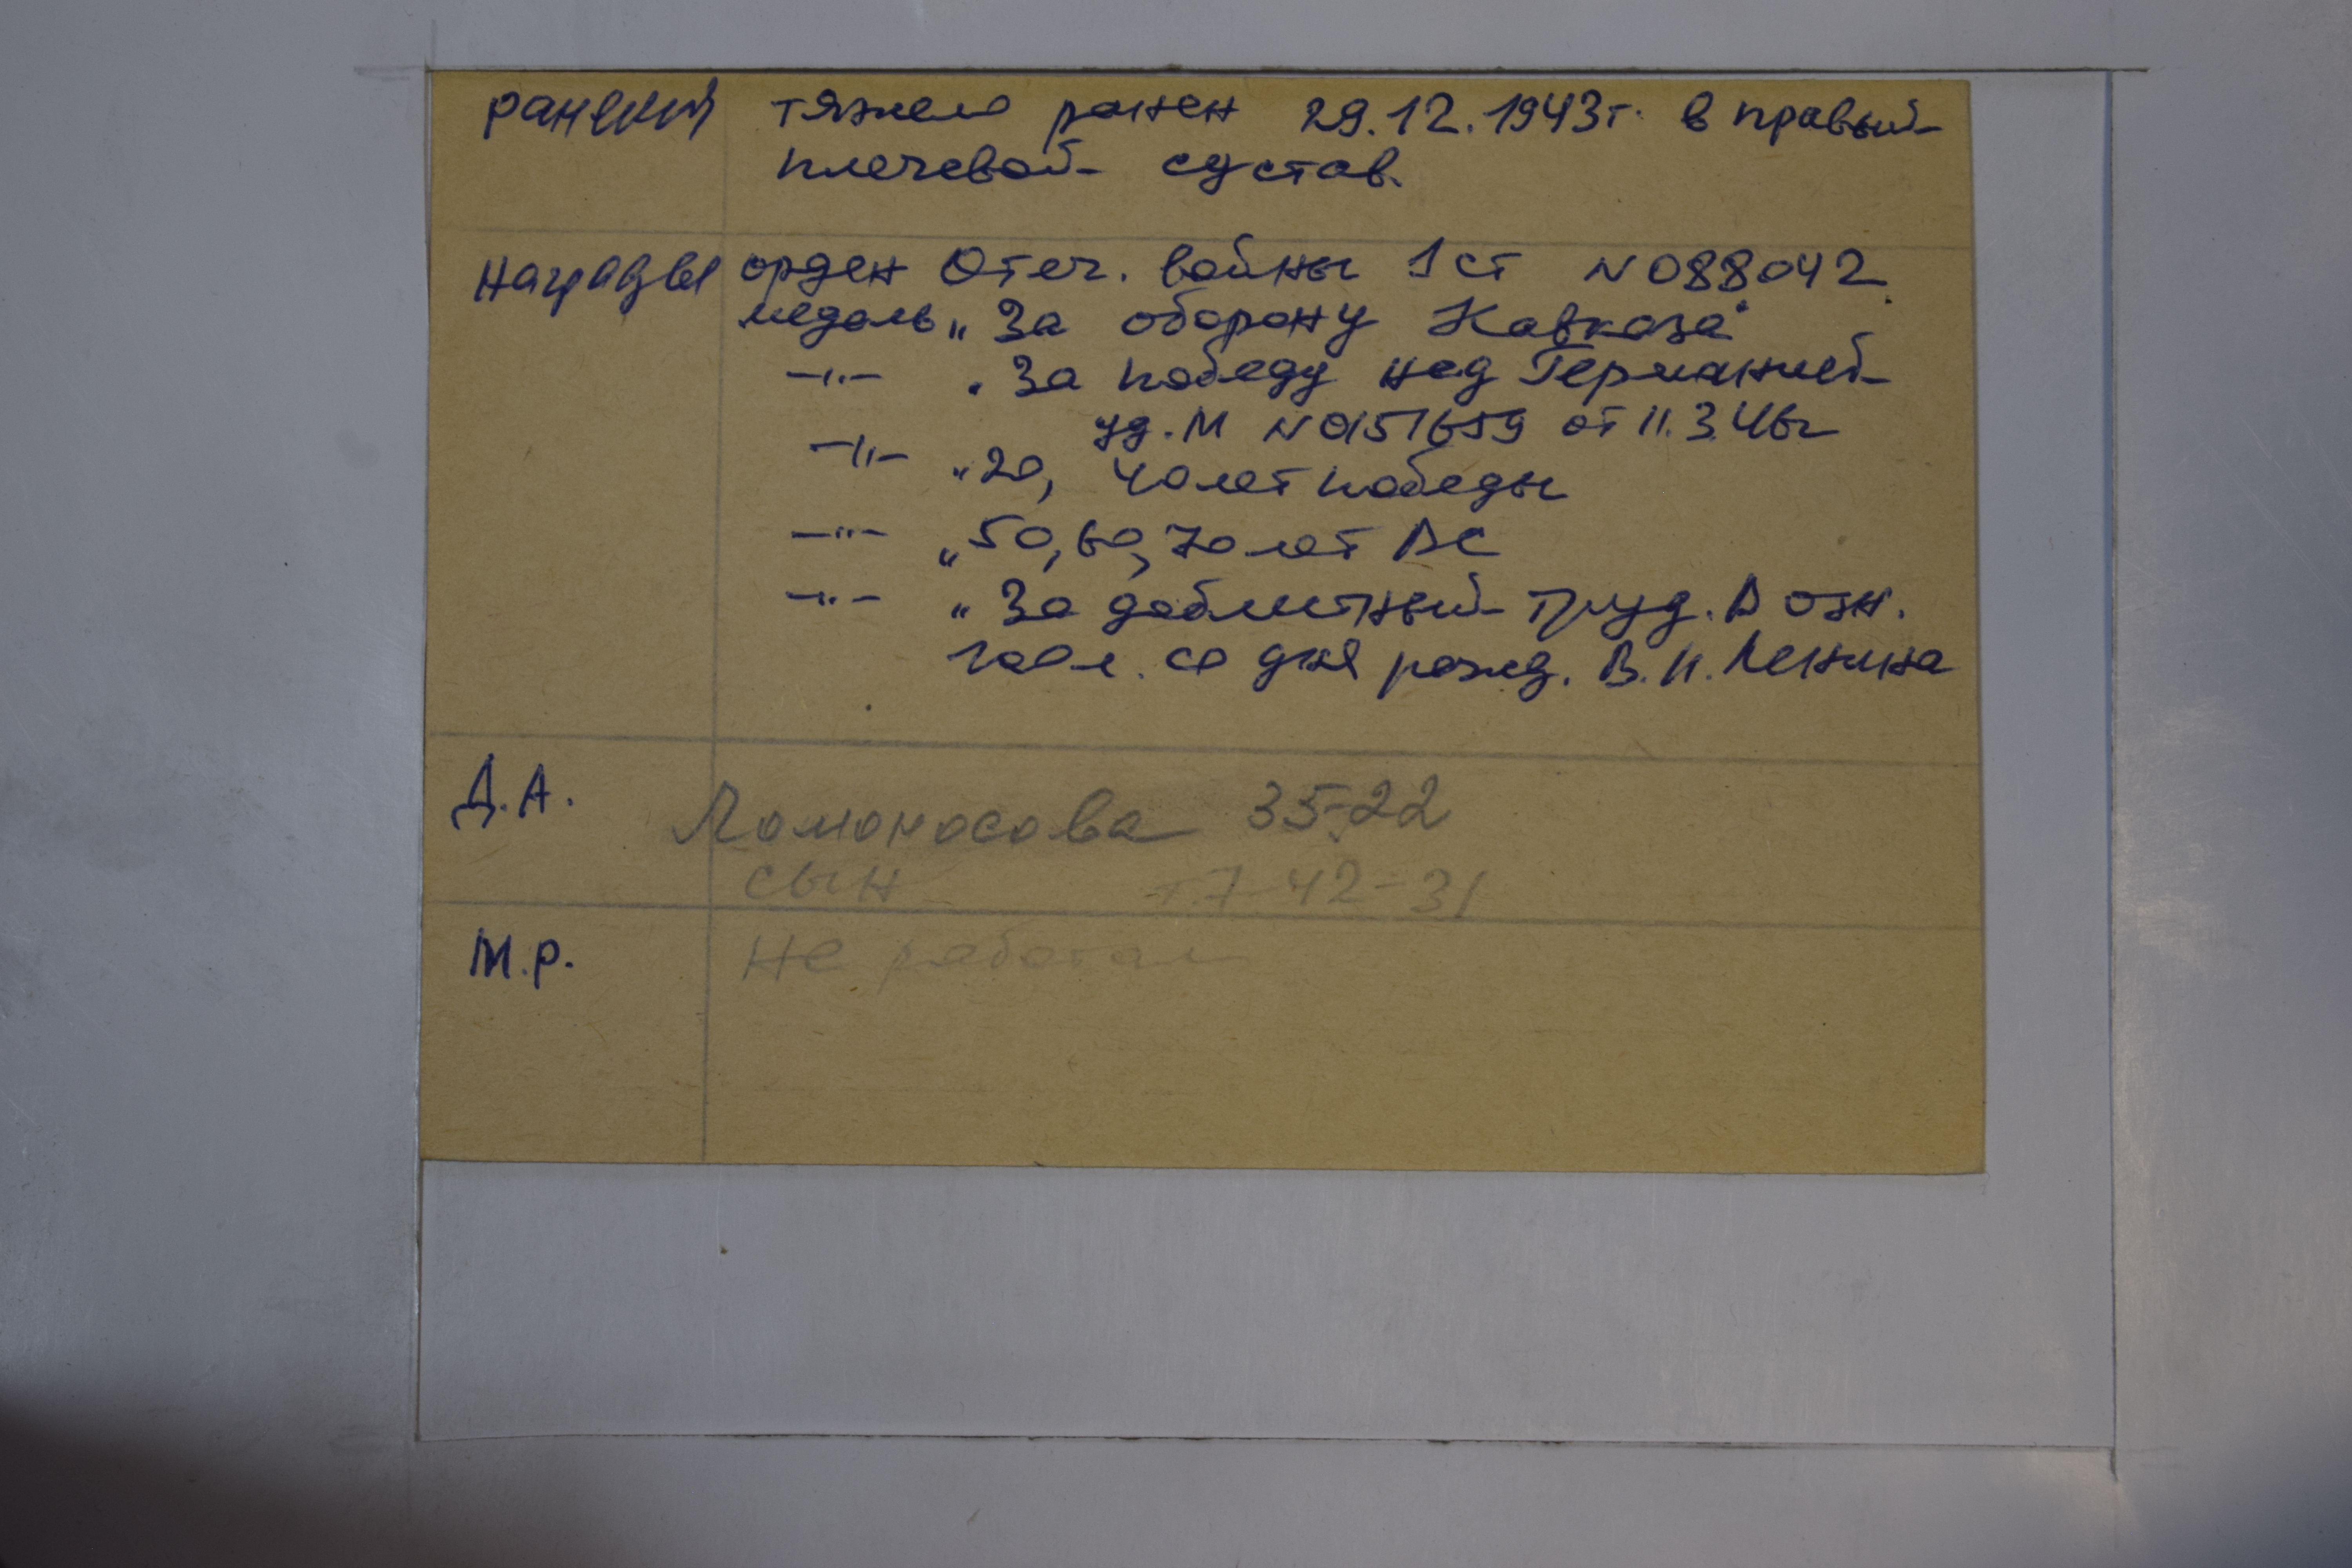 ранения тяжело ранен 29.12.1943г. в правый
плечевой сустав.
Награды орден Отеч. войны 1 ст N088042
медаль „За оборону Кавказа"
—"— „За победу над Германией
уд. М N0151659 от 11.3.46г
—"— „20, 40 лет победы
—"— „50, 60, 70 лет ВС
—"— „За доблестный труд. В озн.
100 л. со дня рожд. В.И. Ленина
Д.А. Ломоносова 35-22
сын т.7-42-31
М.Р. не работал